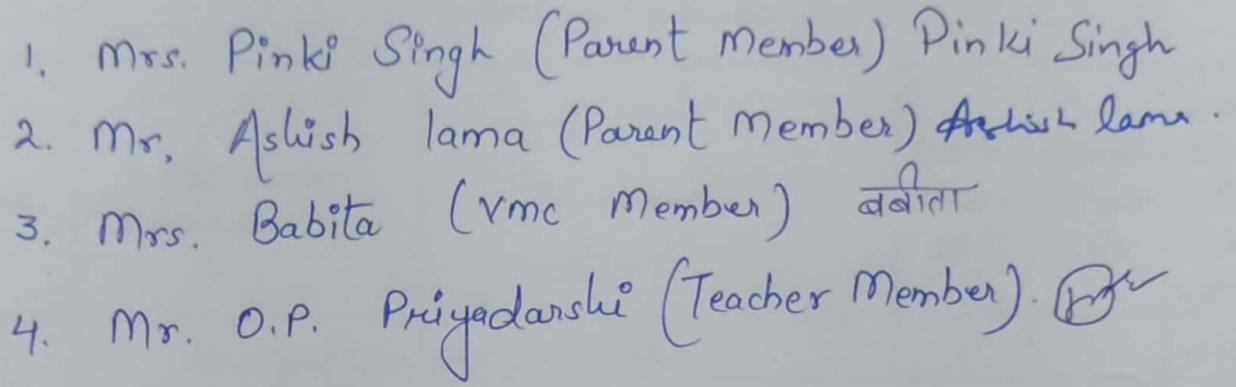 1. Mrs. Pinki Singh (Parent Member) Pinki Singh
2. Mr. Ashish lama (Parent Member) Ashish lama.
3. Mrs. Babita (VMC Member) बबीता
4. Mr. O.P. Priyadarshi (Teacher Member).